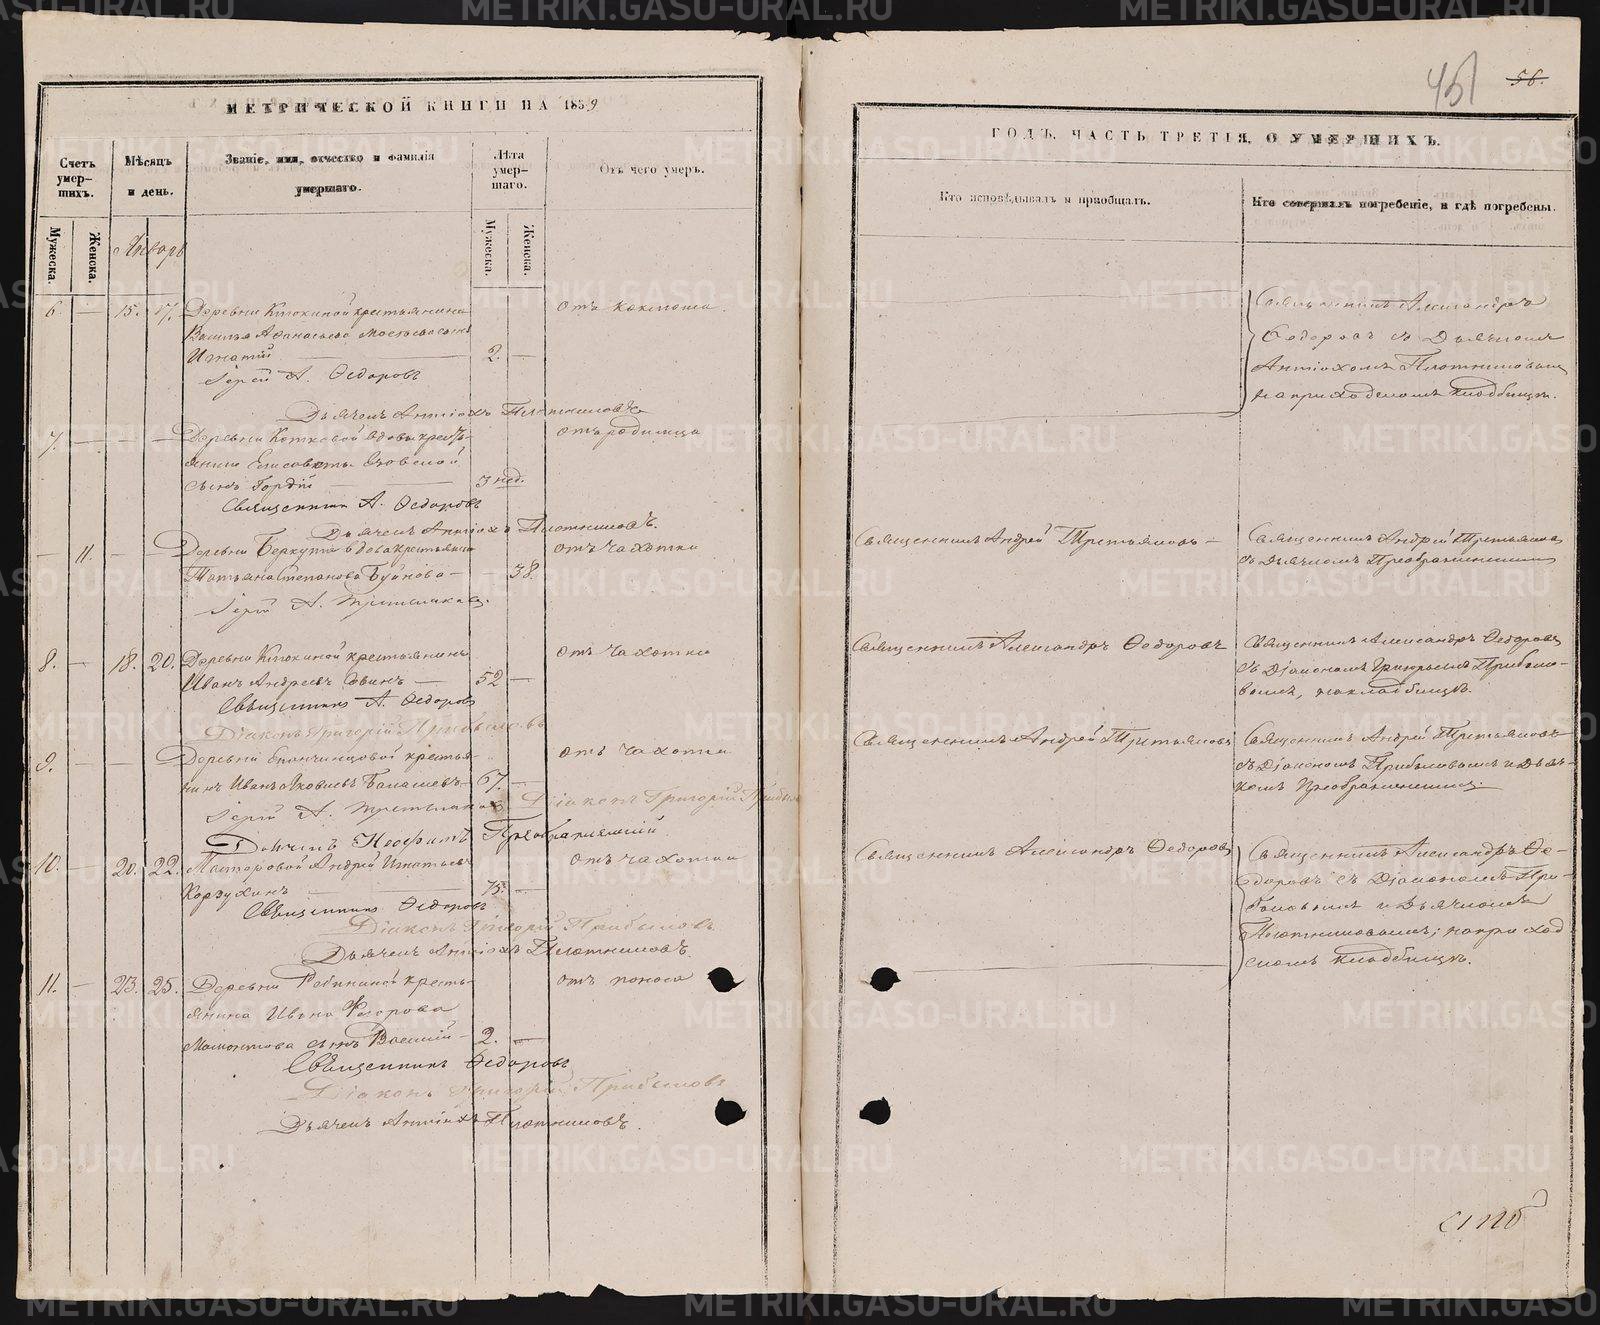 МЕТРИЧЕСКОЙ КНИГИ НА 1859
Счетъ умер-шихъ.
Мѣсяцъ и день.
Званіе, имя, отчество и фамилія умершаго.
Лѣта умер-шаго.
Отъ чего умеръ.
Мужеска.
Женска.
Мужеска.
Женска.
Январь
6. — 15. 17. Деревни Ключиной крестьянина отъ коклюша.
Василья Афанасьева сынъ
Игнатій — 2. —
Іерей А. Ѳедоровъ
Дьячекъ Антіохъ Плотниковъ
7. — — — Деревни вдовы кресть- отъ родимца
янки Елисаветы
сынъ Гордій — 3 нед.
Священникъ А. Ѳедоровъ
Дьячекъ Антіохъ Плотниковъ.
— 11. — — Деревни Беркута вдова крестьянка отъ чахотки
Татьяна Степанова Буйнова — 38.
Іерей А. Третьяковъ.
8. — 18. 20. Деревни Ключиной крестьянинъ отъ чахотки
Иванъ Андреевъ — 52 —
Священникъ А. Ѳедоровъ
Діаконъ Григорій Прибыловъ
9. — — — Деревни крестья- отъ чахотки
нинъ Иванъ Яковлевъ Балашевъ — 67. —
Іерей А. Третьяковъ Діаконъ Григорій Прибыл
Дьячекъ Неофитъ Преображенскій.
10. — 20. 22. Мастеровой Андрей Игнатьевъ отъ чахотки
Корзухинъ — 75. —
Священникъ Ѳедоровъ
Діаконъ Григорій Прибыловъ
Дьячекъ Антіохъ Плотниковъ.
11. — 23. 25. Деревни Рябининой кресть- отъ поноса
янина Ивана Ѳедорова
Мамонтова сынъ Василій — 2. —
Священникъ Ѳедоровъ
Діаконъ Григорій Прибыловъ
Дьячекъ Антіохъ Плотниковъ.
451 56.
ГОДЪ, ЧАСТЬ ТРЕТІЯ, О УМЕРШИХЪ.
Кто исповѣдывалъ и пріобщалъ.
Кто совершалъ погребеніе, и гдѣ погребены.
Священникъ Александръ
Ѳедоровъ съ Дьячкомъ
Антіохомъ Плотниковымъ
на приходскомъ кладбищѣ.
Священникъ Андрей Третьяковъ — Священникъ Андрей Третьяковъ
съ Дьячкомъ Преображенскимъ
Священникъ Александръ Ѳедоровъ Священникъ Александръ Ѳедоровъ
съ Діакономъ Григорьемъ Прибыло-
вымъ, на кладбищѣ.
Священникъ Андрей Третьяковъ Священникъ Андрей Третьяковъ
съ Діакономъ Прибыловымъ и Дьяч-
комъ Преображенскимъ.
Священникъ Александръ Ѳедоровъ Священникъ Александръ Ѳе-
доровъ съ Діакономъ При-
быловымъ и Дьячкомъ
Плотниковымъ; на приход-
скомъ кладбищѣ.
METRIKI.GASO-URAL.RU